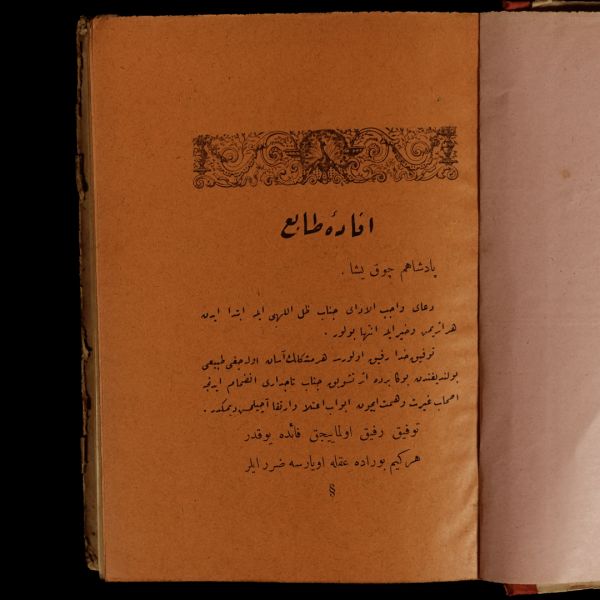 افادهٔ طابع
پادشاهم چوق یشا .
دعای واجب الادای جناب ظل اللهی ایله ابتدا ایدن
هر اثر یمن وخیر ایله انتها بولور .
توفیق خدا رفیق اولورسه هر مشکلك آسان اوله‌جغی طبیعی
بولندیغندن بوکا برده اثر تشویق جناب تاجداری انضمام ایدرسه
اصحاب غیرت وهمت ایچون ابواب اعتلا وارتقا آچیلمش دیمکدر .
توفیق رفیق اولمایجق فائده یوقدر
هرکیم بوراده عقله اویارسه ضرر ایلر
§